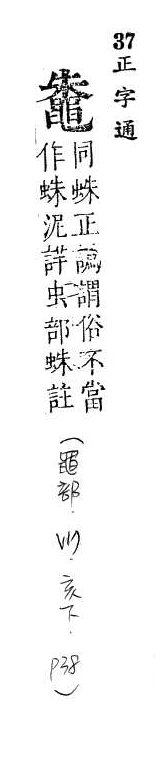 37 正字通
鼄
同蛛正譌謂俗不當
作蛛泥詳虫部蛛註
(黽部.亥下.p38)